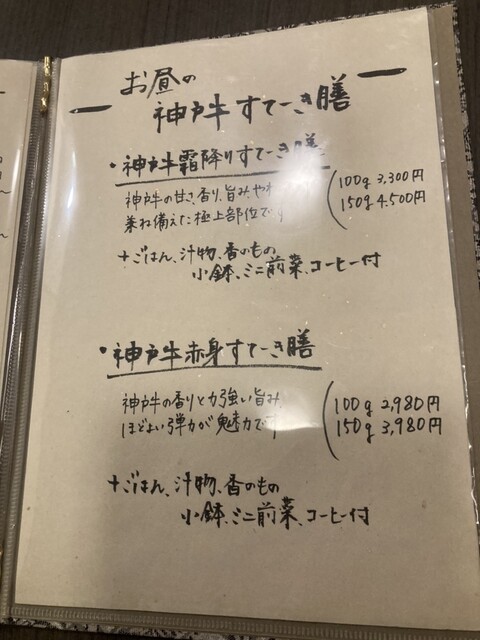 お昼の
神戸牛すてーき膳
・神戸牛霜降りすてーき膳
神戸牛の甘さ、香り、旨み、やわ
兼ね備えた極上部位です
100g 3,300円
150g 4,500円
+ごはん、汁物、香のもの
小鉢、ミニ前菜、コーヒー付
・神戸牛赤身すてーき膳
神戸牛の香りと力強い旨み、
ほどよい弾力が魅力です
100g 2,980円
150g 3,980円
+ごはん、汁物、香のもの
小鉢、ミニ前菜、コーヒー付